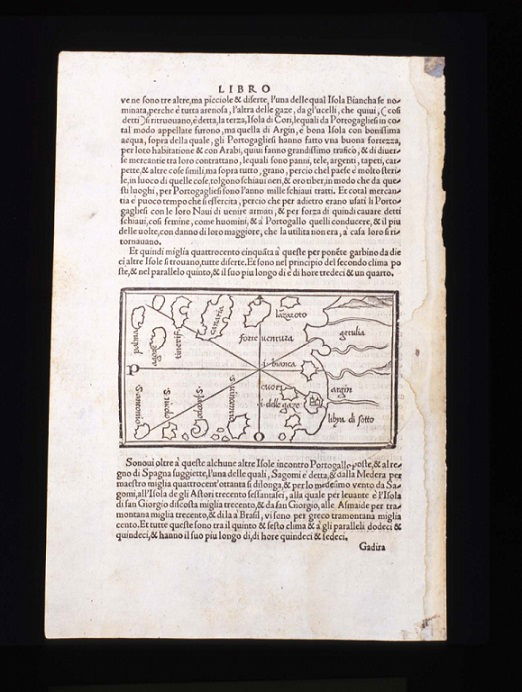 LIBRO
ve ne sono tre altre, ma picciole & diserte, l'una delle qual Isola Biancha se no-
minata, perche è tutta arenosa, l'altra delle gaze, da gl'ucelli, che quiui, (cosi
detti) si ritruouano, è detta, la terza, Isola di Cori, lequali da Portogallesi in co-
tal modo appellate furono, ma quella di Argin, e bona Isola con bonissima
acqua, sopra della quale, gli Portogallesi hanno fatto vna buona fortezza,
per loro habitatione & con Arabi, quiui fanno grandissimo trafico, & di diuer-
se mercantie tra loro contrattano, lequali sono panni, tele, argenti, tapeti, car-
pette, & altre cose simili, ma sopra tutto, grano, percio chel paese e molto steri-
le, in luoco di quelle cose, tolgono schiaui neri, & oro tiber, in modo che da que-
sti luoghi, per Portogallesi sono l'anno mille schiaui tratti. Et cotal mercan-
tia è puoco tempo che si essercita, percio che per adietro erano usati li Porto-
gallesi con le lor Naui di uenire armati, & per forza di quindi cauare detti
schiaui, cosi femine, come huomini, & à Portogallo quelli conducere, & il piu
delle uolte, con danno di loro maggiore, che la utilita non era, à casa loro si ri-
tornauano.
Et quindi miglia quattrocento cinquāta à queste per ponēte garbino da die
ci altre Isole si trouano, tutte diserte. Et sono nel principio del secondo clima po
ste, & nel parallelo quinto, & il suo piu longo di e di hore tredeci & un quarto.
palma
gomera
tinerife
canaria
forte uentura
lāzaroto
getulia
i. bianca
cuori
i. delle gaze
argin
libya di sotto
P
O
S. antonio
S. nicolo
Sonoui oltre à queste alchune altre Isole incontro Portogallo poste, & al re-
gno di Spagna suggiette, l'una delle quali, Sagomi è detta, & dalla Medera per
maestro miglia quattrocent'ottanta si dilonga, & per lo medesimo vento da Sa-
gomi, all'Isola de gli Astori trecento sessantasei, alla quale per leuante è l'Isola
di san Giorgio discosta miglia trecento, & da san Giorgio, alle Asmaide per tra-
montana miglia trecento, & di la à Brasil, vi sono per greco tramontana miglia
cento. Et tutte queste sono tra il quinto & sesto clima & à gli paralleli dodeci &
quindeci, & hanno il suo piu longo di, di hore quindeci & sedeci.
Gadira